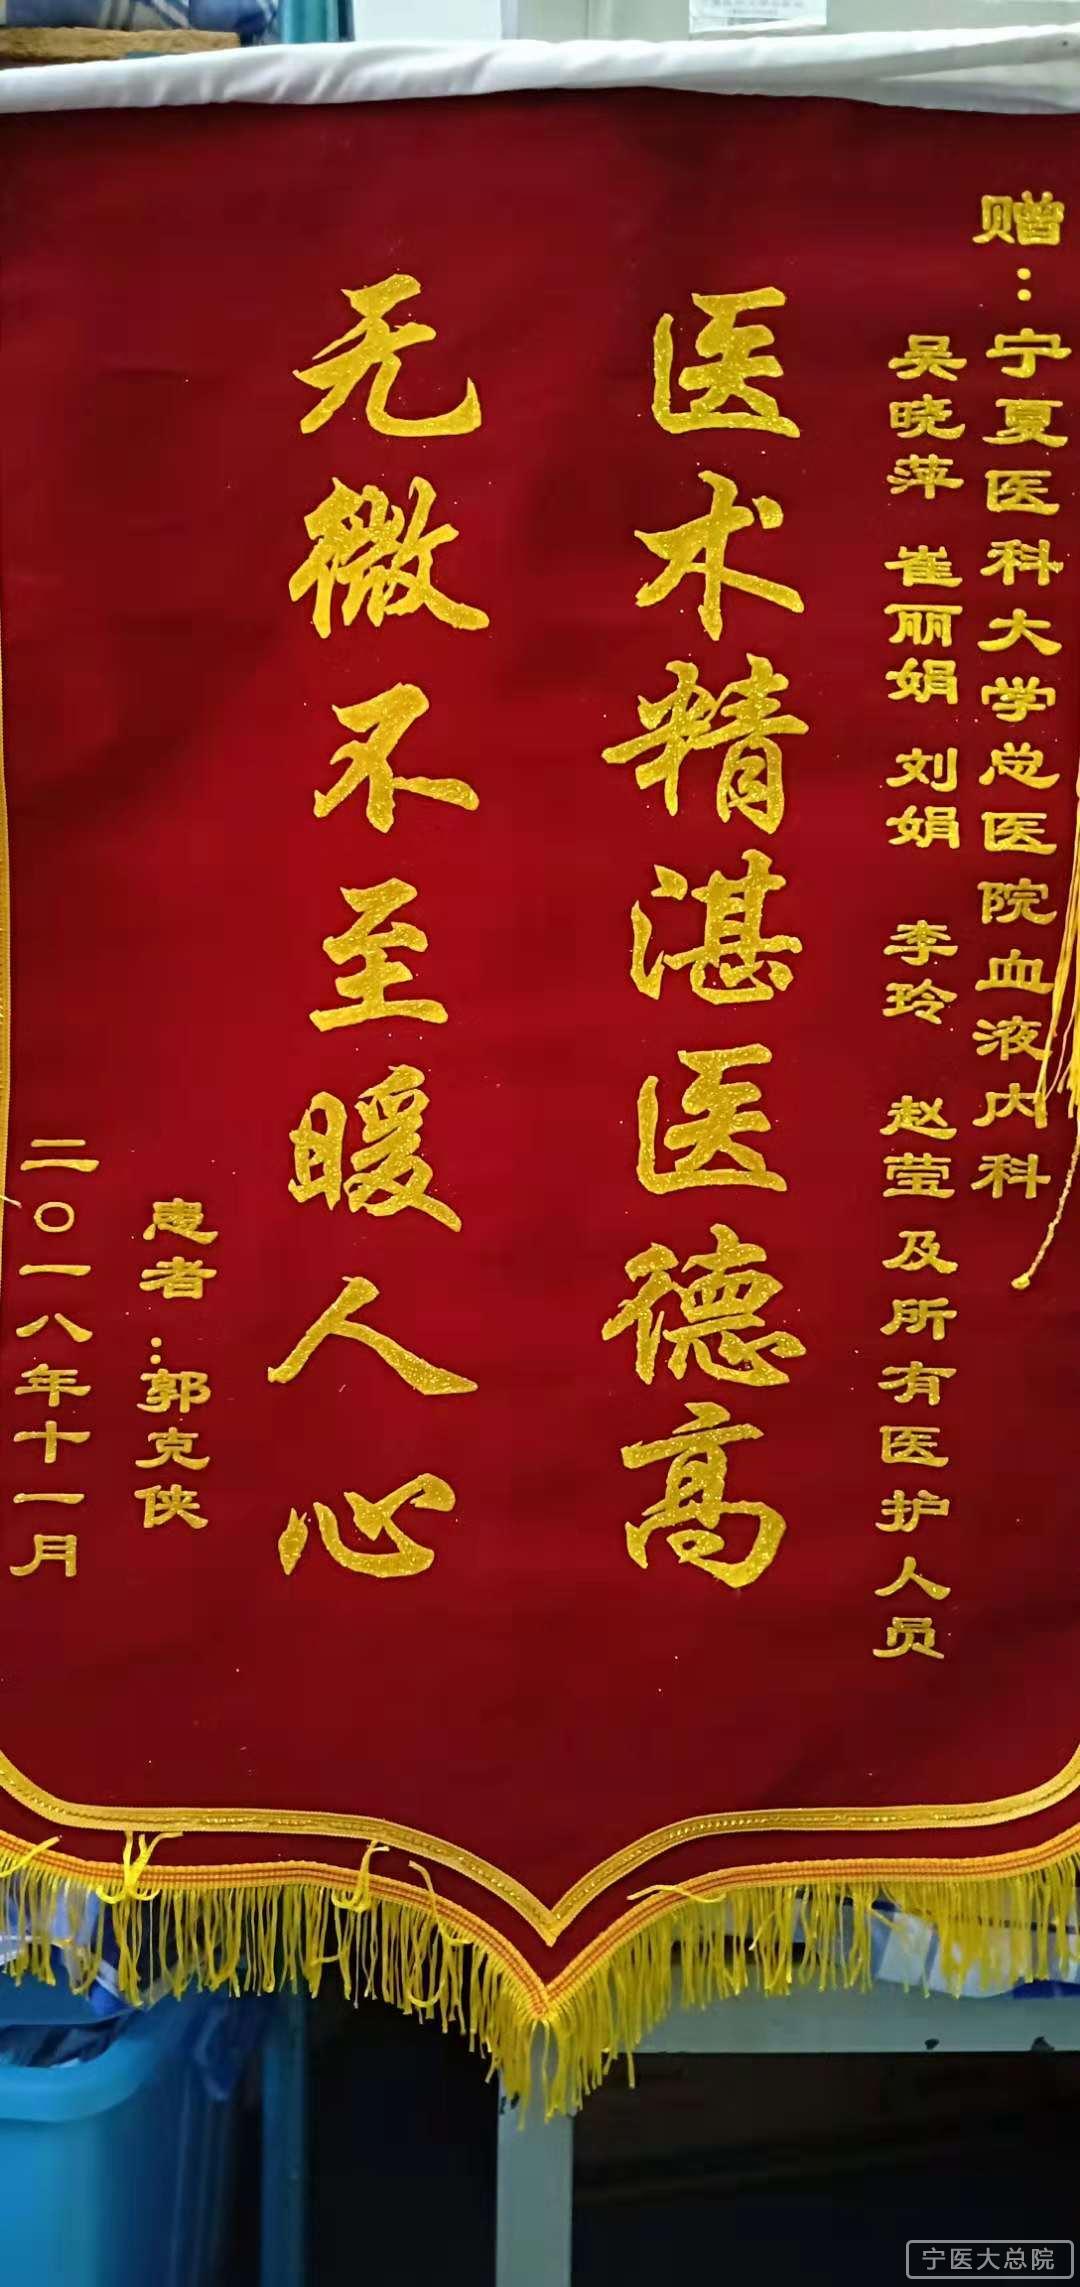 赠：宁夏医科大学总医院血液内科
吴晓萍 崔丽娟 刘娟 李玲 赵莹及所有医护人员
医术精湛医德高
无微不至暖人心
患者：郭克侠
二〇一八年十一月
宁医大总院